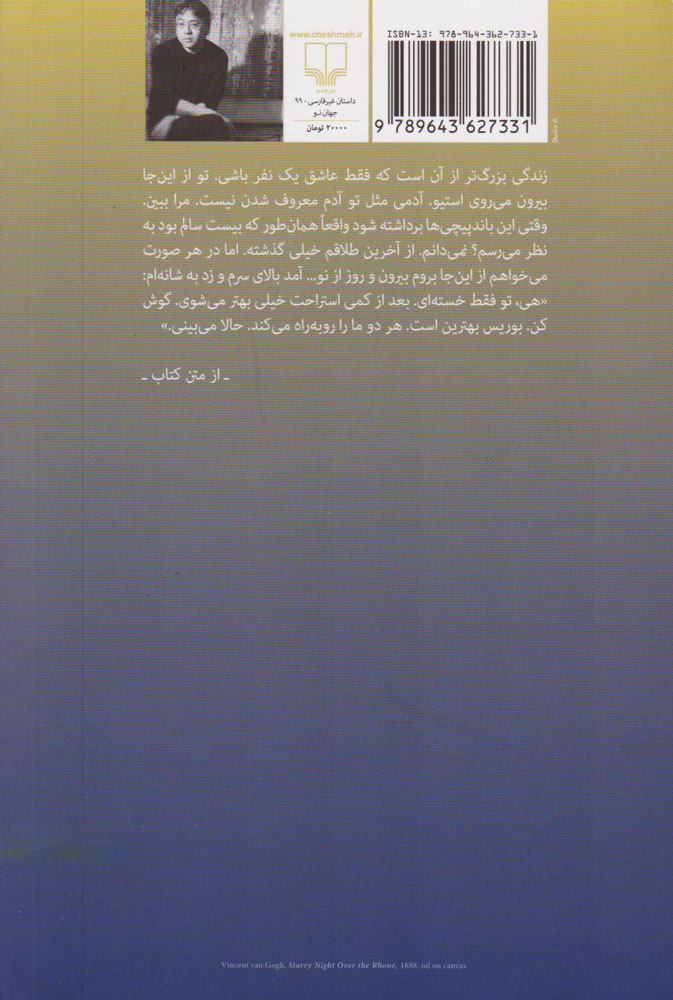 ISBN-13: 978-964-362-733-1
9 789643 627331
Studio A
www.cheshmeh.ir
نشرچشمه
داستان غیرفارسی - ۹۹
جهان نو
۲۰۰۰۰ تومان
زندگی بزرگ‌تر از آن است که فقط عاشق یک نفر باشی. تو از این‌جا
بیرون می‌روی استیو. آدمی مثل تو آدم معروف شدن نیست. مرا ببین.
وقتی این باندپیچی‌ها برداشته شود واقعاً همان‌طور که بیست سالم بود به
نظر می‌رسم؟ نمی‌دانم. از آخرین طلاقم خیلی گذشته. اما در هر صورت
می‌خواهم از این‌جا بروم بیرون و روز از نو... آمد بالای سرم و زد به شانه‌ام:
«هی، تو فقط خسته‌ای. بعد از کمی استراحت خیلی بهتر می‌شوی. گوش
کن. بوریس بهترین است. هر دو ما را روبه‌راه می‌کند. حالا می‌بینی.»
ـ از متن کتاب ـ
Vincent van Gogh, Starry Night Over the Rhone, 1888, oil on canvas